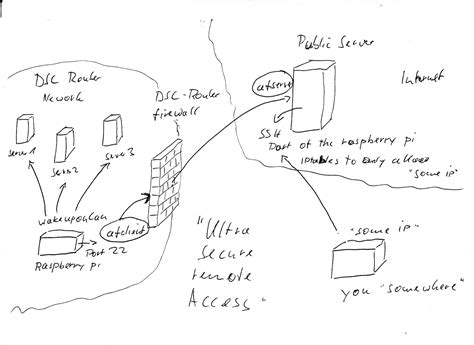 DSL Router
Network
server 1
server 2
server 3
wakeuponLan
Raspberry pi
Port 22
DSL-Router
firewall
Public Server
Internet
SSH
Port of the raspberry pi
iptables to only allow
"some ip"
"Ultra
secure
remote
Access"
"some ip"
you "somewhere"